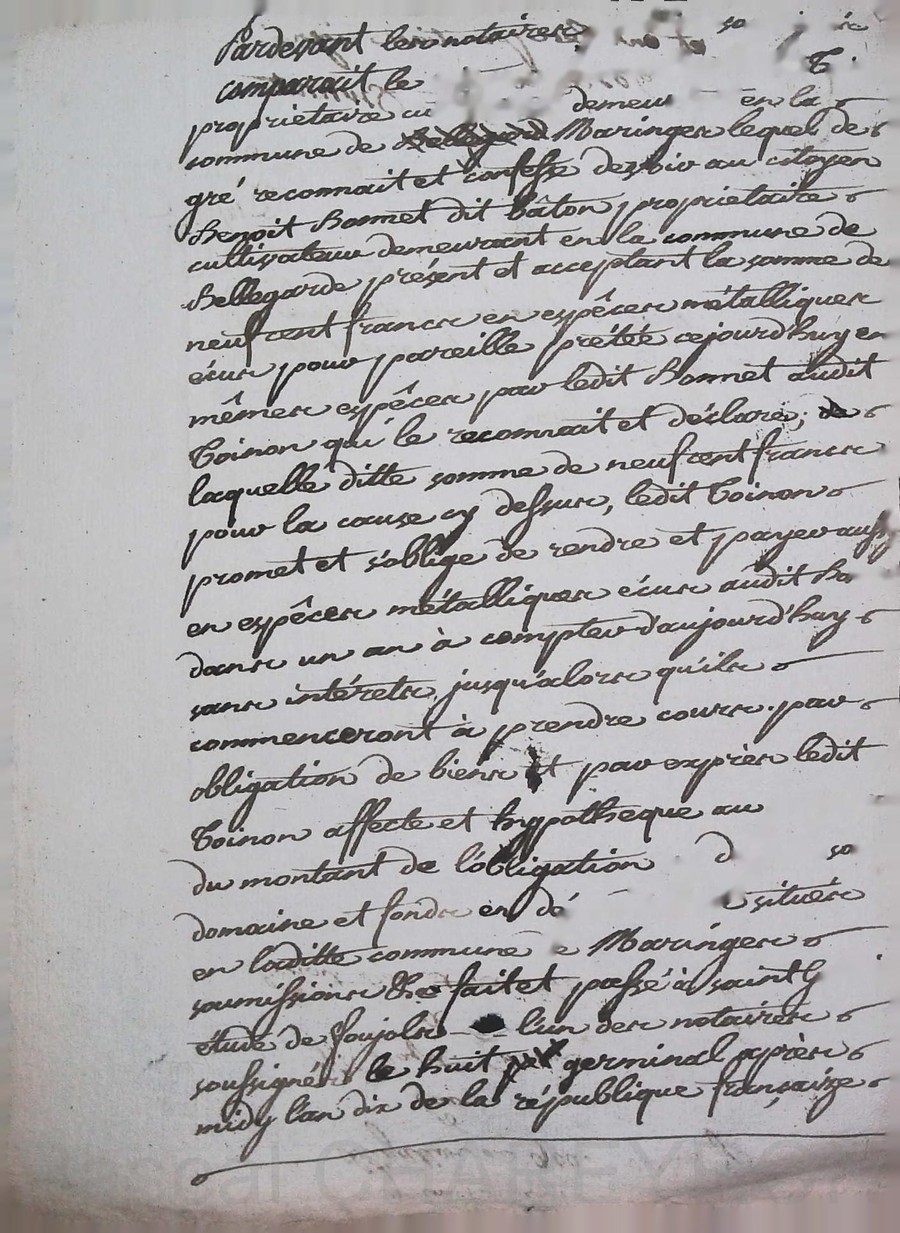 Pardevant les notaires
comparait le
propriétaire cu demeu en la
commune de Maringes lequel de
gré reconnait et confesse devoir au citoyen
Benoit Bonnet dit bâton propriétaire
cultivateur demeurant en la commune de
Bellegarde présent et acceptant la somme de
neuf cent francs en espêces métalliques
écus pour pareille prétée cejourd'huy en
mêmes espêces par ledit Bonnet audit
Toinon qui le reconnait et déclare,
laquelle ditte somme de neuf cent francs
pour la cause cy dessus, ledit Toinon
promet et s'oblige de rendre et payer aussy
en espêces métalliques écus audit Bo
dans un an à compter d'aujourd'huy
sans intérets jusqu'alors qu'ils
commenceront à prendre cours. par
obligation de biens et par exprès ledit
Toinon affecte et hypotheque au
du montant de l'obligation
domaine et fonds en dé situés
en laditte commune e Maringes
soumissions &c fait et passé à saint
étude de Soujols l'un des notaires
soussignés le huit germinal après
midy l'an dix de la république françaize